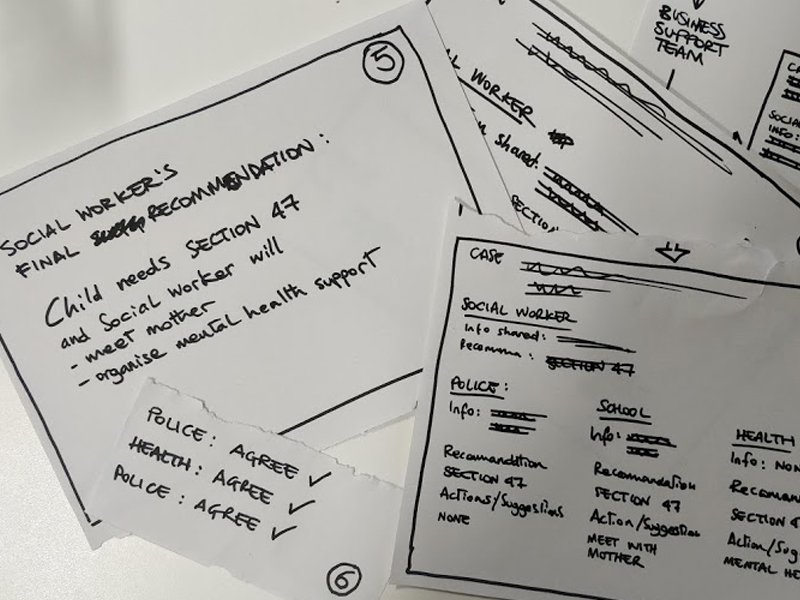 5
SOCIAL WORKER'S
FINAL RECOMMENDATION:
Child needs SECTION 47
and Social Worker will
- meet mother
- organise mental health support
POLICE: AGREE ✓
HEALTH: AGREE ✓
POLICE: AGREE ✓
6
AL WORKER
shared:
SECTION
BUSINESS
SUPPORT
TEAM
CA
SOCIA
INFO:
CASE
SOCIAL WORKER
Info shared:
Recomm:
SECTION 47
POLICE:
Info:
Recomandation
SECTION 47
Actions/Suggestions
NONE
SCHOOL
Info:
Recomandation
SECTION 47
Action/Suggestion
MEET WITH
MOTHER
HEALTH
Info: NON
Recoman
SECTION 4
Action/Sug
MENTAL HE